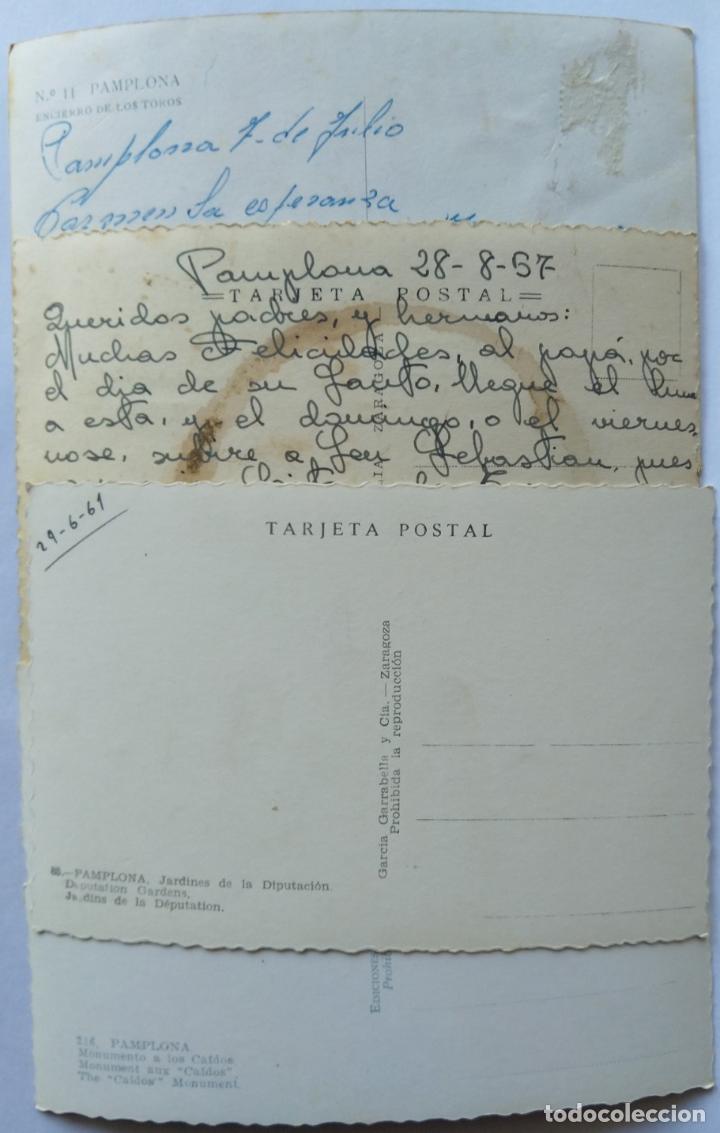 N.º 11 PAMPLONA
ENCIERRO DE LOS TOROS
Pamplona 7-de Julio
Carmen La esperanza
Pamplona 28-8-57
=TARJETA POSTAL=
Queridos padres, y hermanos:
Muchas Felicidades, al papá, por
el dia de su Santo, llegue el
a esta, y el domingo, o el viernes
nose, subire a San Sebastian, pues
ZARAGOZA
29-6-61
TARJETA POSTAL
Garcia Garrabella y Cia. — Zaragoza
Prohibida la reproducción
.—PAMPLONA, Jardines de la Diputación.
Deputation Gardens,
Jardins de la Députation.
EDICIONES
Prohib
216. PAMPLONA
Monumento a los Caídos
Monument aux "Caídos".
The "Caídos" Monument.
todocoleccion